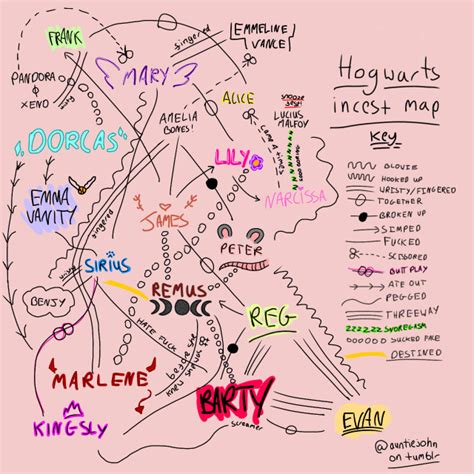 FRANK
fingered
EMMELINE
VANCE!
MARY
PANDORA
XENO
ALICE
snooze
sesh
LUCIUS
MALFOY
AMELIA
BONES!
Hogwarts
incest map
Key
DORCAS
LILY
NARCISSA
EMMA
VANITY
fingered
JAMES
PETER
SIRIUS
BENSY
REMUS
HATE FUCK
REG
MARLENE
BARTY
screamer
KINGSLY
EVAN
HOOKED UP
WRISTY/FINGERED
TOGETHER
BROKEN UP
SIMPED
FUCKED
SCISSORED
BUTT PLAY
ATE OUT
PEGGED
THREEWAY
DESTINED
@auntiejohn
on tumblr